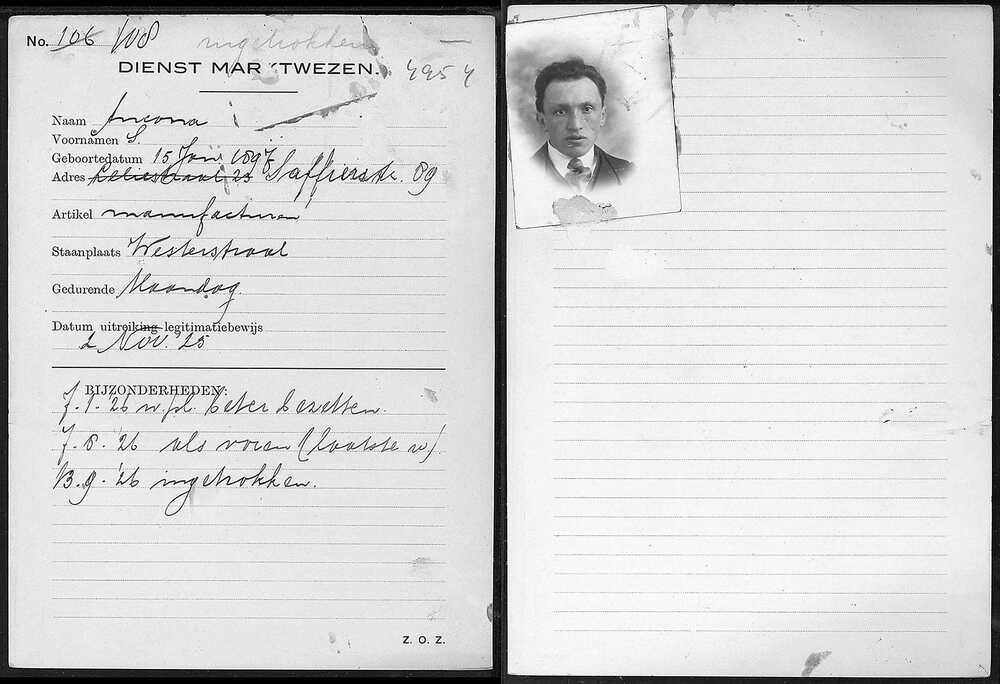 No. 106 108 ingetrokken
DIENST MARKTWEZEN. 4954
Naam Ancona
Voornamen S.
Geboortedatum 15 Juni 1897
Adres Leliestraat 23 Saffierstr. 89
Artikel manufacturen
Staanplaats Westerstraat
Gedurende Maandag.
Datum uitreiking legitimatiebewijs
2 Nov. '25
BIJZONDERHEDEN:
7.1.'26 w. pl. beter bezetten.
7.8.'26 als voren (laatste w).
13.9.'26 ingetrokken.
Z. O. Z.